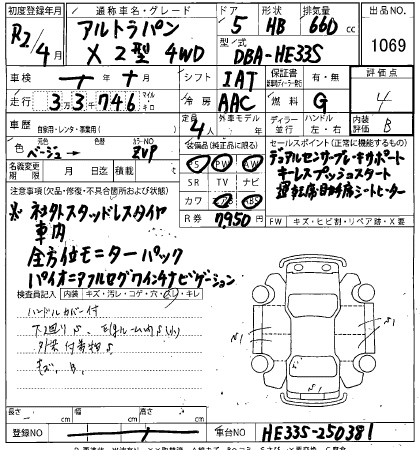 初度登録年月 通称車名・グレード ドア 形状 排気量 出品NO.
R2/4月 アルトラパン X 2型 4WD 5 HB 660 cc 1069
型式 DBA-HE33S
車検 シフト IAT 保証書 有・無 評価点 4
走行 33,746 マイル キロ 冷房 AAC 燃料 G
車歴 自家用・レンタ・事業用 定員 4人 外車モデル ディーラー 並行 ハンドル 左・右 内装評価 B
色 ベージュ→ カラーNO ZVP
装備品(純正品に限る) セールスポイント(正常に機能するもの)
PS PW AW
SR TV ナビ
カワ ABS
デュアルセンサーブレーキサポート
キーレスプッシュスタート
運転席助手席シートヒーター
名義変更期限 月 日 積載
R券 7,950 FW キズ・ヒビ割・リペア跡・X要
注意事項(欠品・修復・不具合箇所および状態)
※社外スタッドレスタイヤ
車内
全方位モニターパック
パイオニアフルセグワイドナビゲーション
検査員記入 内装 キズ・汚レ・コゲ・穴・キレ
ハンドルカバー付
下廻りS
キズ、B
長さ cm 幅 cm 高さ cm
登録NO 車台NO HE33S-250381